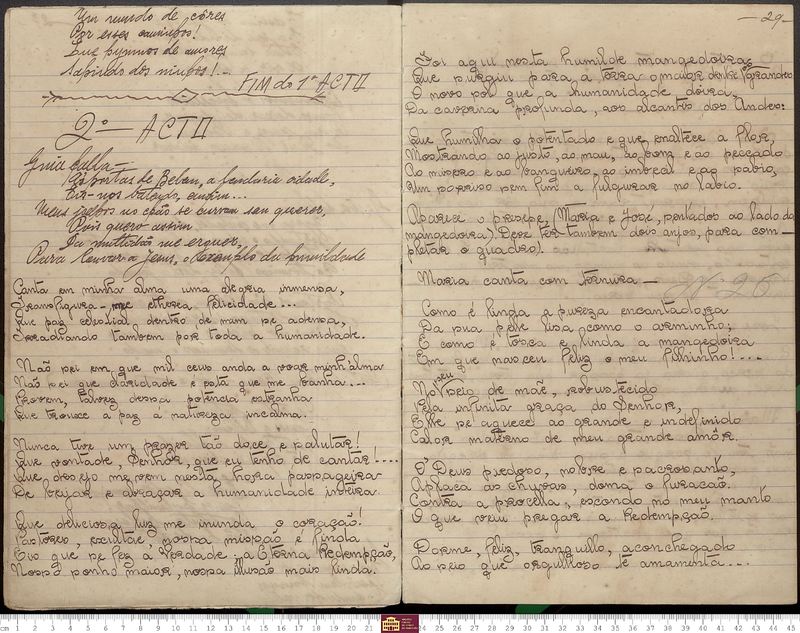 Um mundo de côres
Por esses caminhos!
Que hymnos de amores
Sahindo dos ninhos!...
FIM do 1º ACTO
2º — ACTO
Guia bella —
Às portas de Belem, a lendaria cidade,
Eis-nos
Meus joelhos no chão se curvam sem querer,
Pois quero assim
Da multidão me erguer,
Para louvar a Jesus, o Exemplo da humildade
Canta em minha alma uma alegria immensa,
Transfigura-me etherea felicidade...
Que paz celestial dentro de mim se adensa,
Irradiando tambem por toda a humanidade.
Não sei em que mil ceus anda a voar minh'alma
Não sei que claridade é esta que me banha...
Provem, talvez dessa potencia extranha
Que trouxe a paz á natureza incalma.
Nunca tive um prazer tão doce e salutar!
Que vontade, Senhor, que eu tenho de cantar!....
Que desejo me vem nesta hora passageira
De beijar e abraçar a humanidade inteira.
Que deliciosa luz me inunda o coração!
Pastores, exultae, nossa missão é finda
Eis que se fez a Verdade: a Eterna Redempção,
Nosso sonho maior, nossa illusão mais linda.
— 29 —
Foi aqui nesta humilde mangedoira,
Que surgiu para a terra o maior dentre os grandes
O novo sol que a humanidade doira,
Da caverna profunda, aos alcantis dos Andes:
Que humilha o potentado e que enaltece a flor,
Mostrando ao justo, ao mau, ao bom e ao peccado
Ao misero e ao banqueiro, ao imbecil e ao sabio,
Um sorriso sem fim a fulgurar no labio.
Apparece o presepe, (Maria e José, sentados ao lado da
mangedoira). Deve ter tambem dois anjos, para com-
pletar o quadro).
Maria canta com ternura — Nº 26
Como é linda a pureza encantadora
Da sua pelle lisa como o arminho;
E como é tosca e linda a mangedoira
Em que nasceu feliz o meu filhinho!....
No seu seio de mãe, robustecido
Pela infinita graça do Senhor,
Elle se aquece ao grande e indefinido
Calor materno de meu grande amôr.
O' Deus piedoso, nobre e sacrosanto,
Aplaca as chuvas, doma o furacão.
Contra a procella, escondo no meu manto
O que veiu pregar a Redempção.
Dorme, feliz, tranquillo, aconchegado
Ao seio que orgulhoso te amamenta...